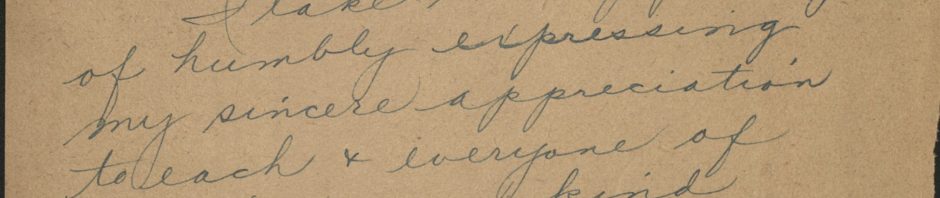 I take
of humbly expressing
my sincere appreciation
to each & everyone of
kind